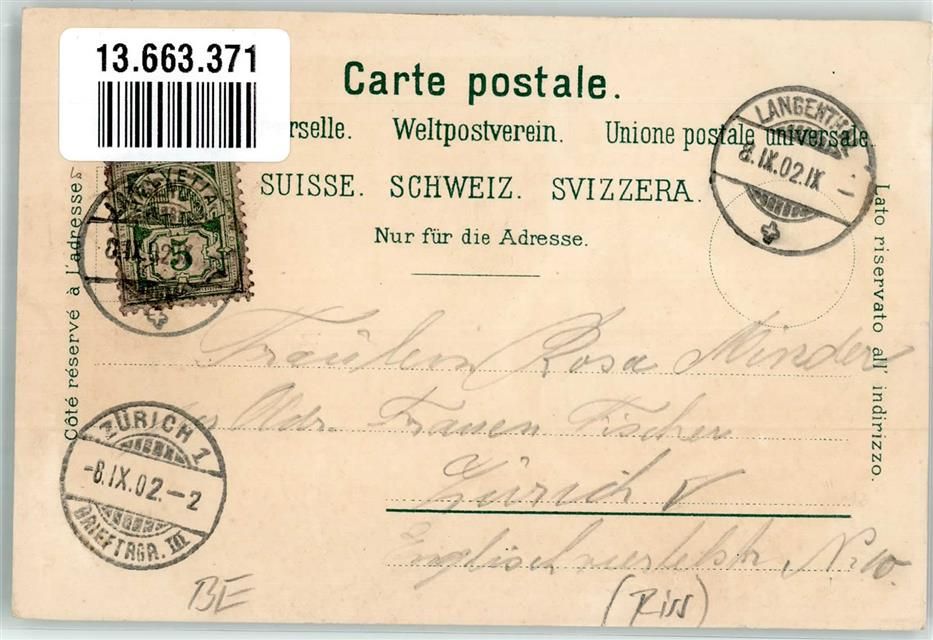 13.663.371
Carte postale.
erselle. Weltpostverein. Unione postale universale.
SUISSE. SCHWEIZ. SVIZZERA.
Nur für die Adresse.
Côté réservé à l'adresse
Lato riservato all' indirizzo.
HELVETIA
5
8.IX.02
LANGENTHAL
8.IX.02.IX
Fräulein Rosa Minder
Adr. Frauen Fischer
Zürich V
Englischviertelstr Nr. 10.
ZÜRICH 1
-8.IX.02.-2
BRIEFTRGR. III
BE
(Riss)